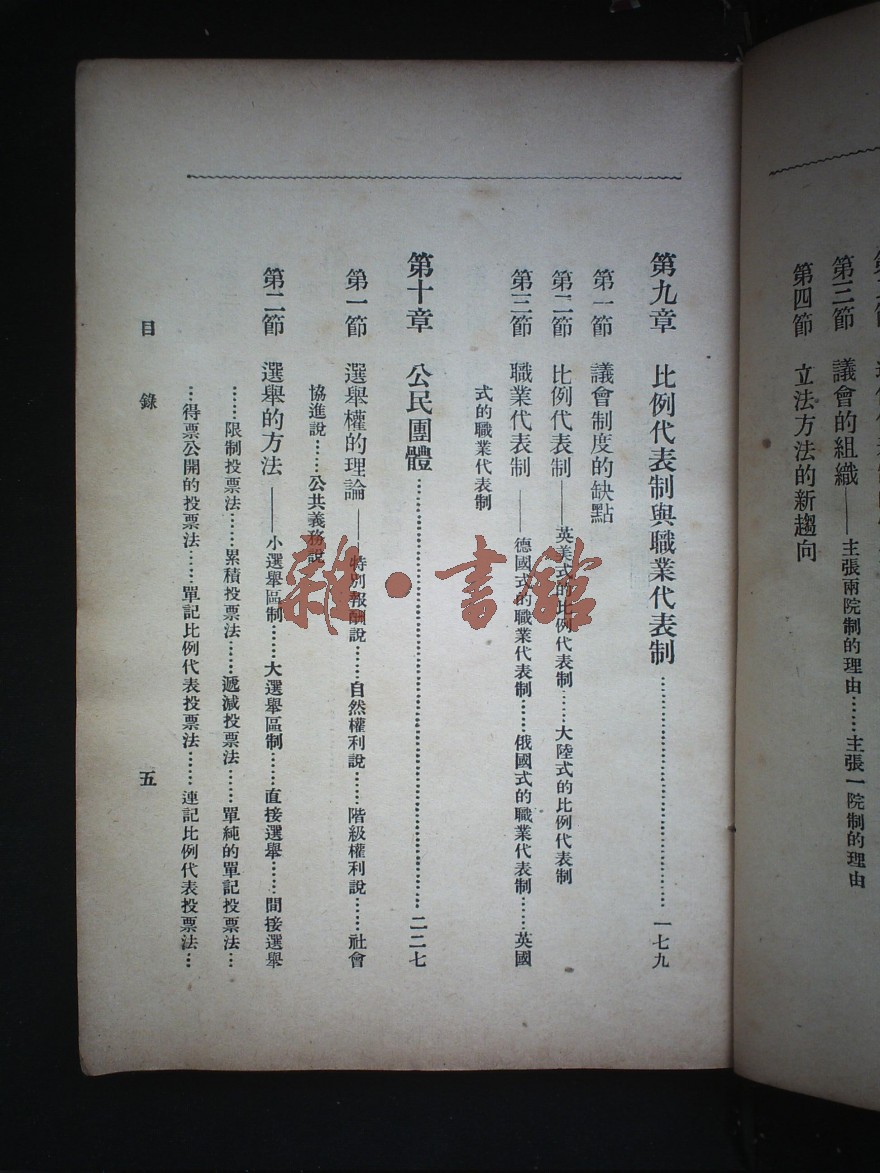 第三節　議會的組織——主張兩院制的理由……主張一院制的理由
第四節　立法方法的新趨向
第九章　比例代表制與職業代表制……一七九
第一節　議會制度的缺點
第二節　比例代表制——英美式的比例代表制……大陸式的比例代表制
第三節　職業代表制——德國式的職業代表制……俄國式的職業代表制……英國
式的職業代表制
第十章　公民團體……二二七
第一節　選舉權的理論——特別報酬說……自然權利說……階級權利說……社會
協進說……公共義務說
第二節　選舉的方法——小選舉區制……大選舉區制……直接選舉……間接選舉
……限制投票法……累積投票法……遞減投票法……單純的單記投票法…
…得票公開的投票法……單記比例代表投票法……連記比例代表投票法…
目錄　五
雜·書館